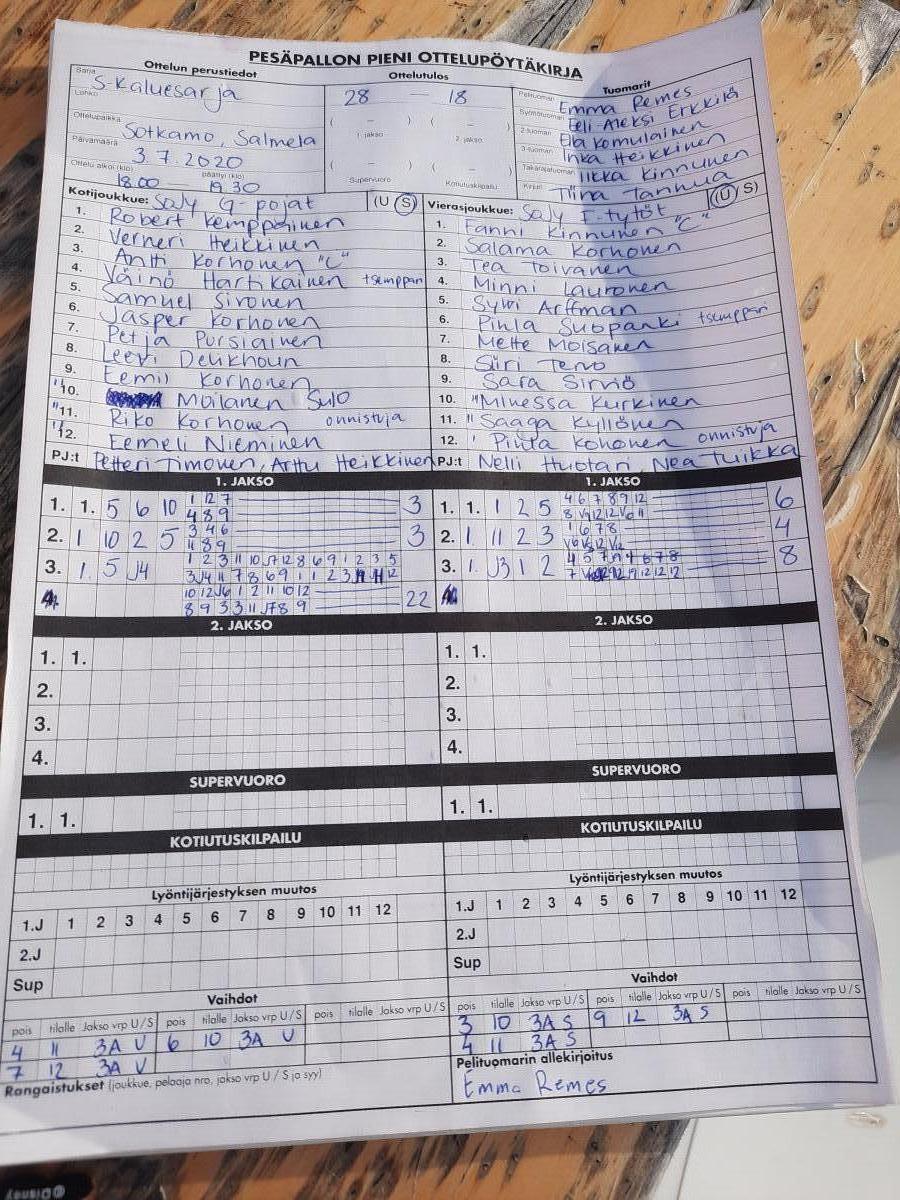 PESÄPALLON PIENI OTTELUPÖYTÄKIRJA
Ottelun perustiedot
Ottelutulos
Tuomarit
Sarja
S-kaluesarja
28 — 18
Pelituomari Emma Remes
Lohko
Syöttötuomari Eeli-Aleksi Erkkilä
Ottelupaikka
Sotkamo, Salmela
( – ) ( – )
1. jakso 2. jakso
2-tuomari Ella Komulainen
3-tuomari Inka Heikkinen
Päivämäärä
3.7.2020
( – ) ( – )
Takarajatuomari Iikka Kinnunen
Ottelu alkoi (klo) päättyi (klo)
18.00 — 19.30
Supervuoro Kotiutuskilpailu
Kirjuri Tiina Tanhua
Kotijoukkue: SoJy G-pojat (U S)
1. Robert Kemppainen
2. Verneri Heikkinen
3. Antti Korhonen "C"
4. Väinö Hartikainen tsemppari
5. Samuel Sironen
6. Jasper Korhonen
7. Petja Pursiainen
8. Leevi Deukhoun
9. Eemil Korhonen
"10. Moilanen Sulo
"11. Riko Korhonen onnistuja
"12. Eemeli Nieminen
PJ:t Petteri Timonen, Arttu Heikkinen
Vierasjoukkue: SoJy F-tytöt (U S)
1. Fanni Kinnunen "C"
2. Salama Korhonen
3. Tea Toivanen
4. Minni Lauronen
5. Sylvi Arffman
6. Pinla Suopanki tsemppari
7. Mette Moisanen
8. Siiri Tervo
9. Sara Sirviö
10. "Minessa Kurkinen
11. "Saaga Kyllönen
12. ' Pinta Kohonen onnistuja
PJ:t Nelli Huotari, Nea Tuikka
1. JAKSO
1. 1. 5 6 10 1 12 7 3
4 8 9
2. 1 10 2 5 3 4 6 3
11 8 9
3. 1. 5 J4 1 2 3 11 10 J7 12 8 6 9 1 2 3 5
10 12 J6 1 2 11 10 12
8 9 3 3 11 J7 8 9 22
1. JAKSO
1. 1. 1 2 5 4 6 7 8 9 12 6
2. 1. 11 2 3 1 6 7 8 4
3. 1. J3 1 2 8
2. JAKSO
1. 1.
2.
3.
4.
2. JAKSO
1. 1.
2.
3.
4.
SUPERVUORO
1. 1.
SUPERVUORO
1. 1.
KOTIUTUSKILPAILU
KOTIUTUSKILPAILU
Lyöntijärjestyksen muutos
1.J 1 2 3 4 5 6 7 8 9 10 11 12
2.J
Sup
Lyöntijärjestyksen muutos
1.J 1 2 3 4 5 6 7 8 9 10 11 12
2.J
Sup
Vaihdot
pois tilalle Jakso vrp U/S pois tilalle Jakso vrp U/S pois tilalle Jakso vrp U/S
4 11 3A U 6 10 3A U
7 12 3A U
Rangaistukset (joukkue, pelaaja nro, jakso vrp U / S ja syy)
Vaihdot
pois tilalle Jakso vrp U/S pois tilalle Jakso vrp U/S pois tilalle Jakso vrp U/S
3 10 3A S 9 12 3A S
4 11 3A S
Pelituomarin allekirjoitus
Emma Remes
©Disney